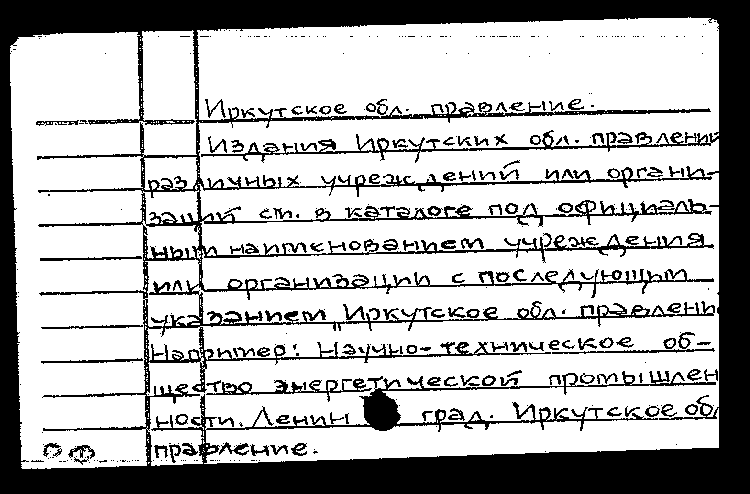 Иркутское обл. правление.
Издания Иркутских обл. правлений
различных учреждений или органи-
заций см. в каталоге под официаль-
ным наименованием учреждения
или организации с последующим
указанием „Иркутское обл. правлени
Например: Научно-техническое об-
щество энергетической промышлен
ности. Ленинград. Иркутское обл
правление.